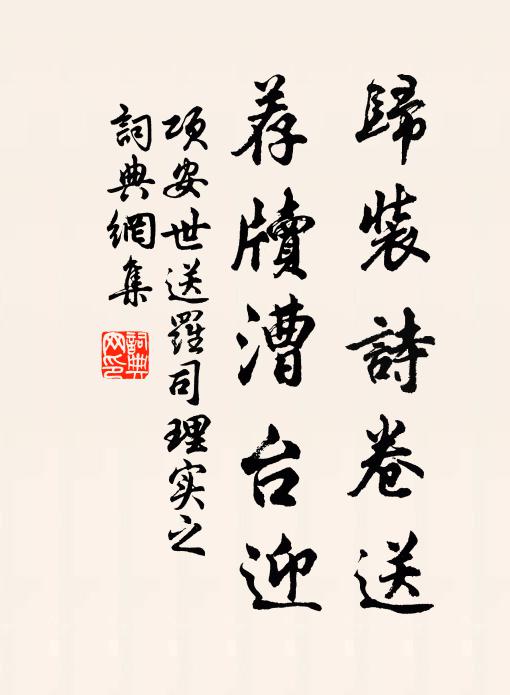 歸裝詩卷送
荐牘漕台迎
项安世送羅司理实之
詞典網集
詞典网印